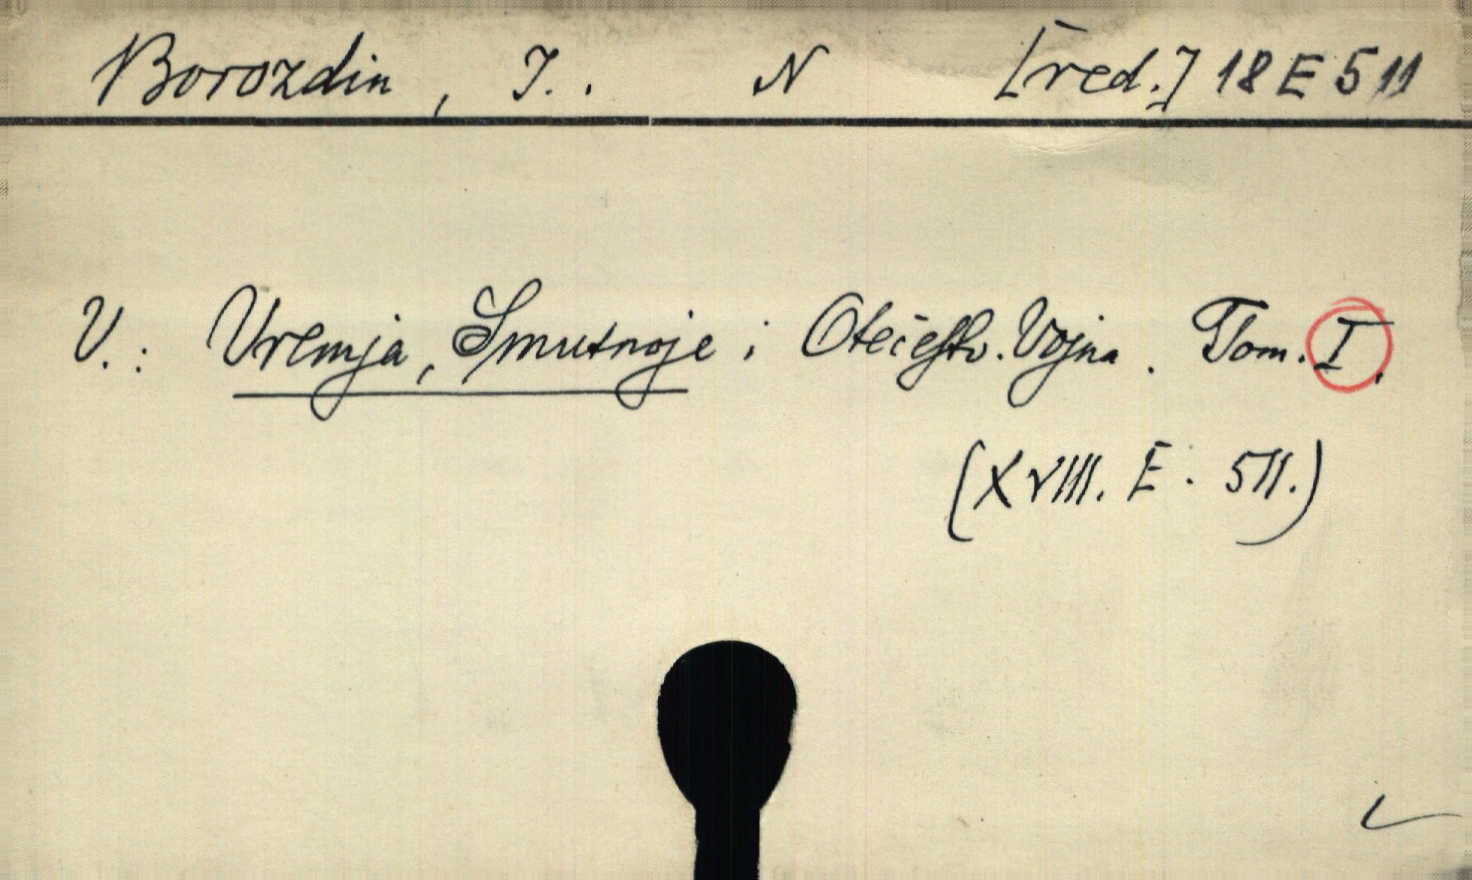 Borozdin, I.. N [red.] 18 E 511
V.: Vremja, Smutnoje i Otečestv. Vojna. Tom. I.
(XVIII. E. 511.)